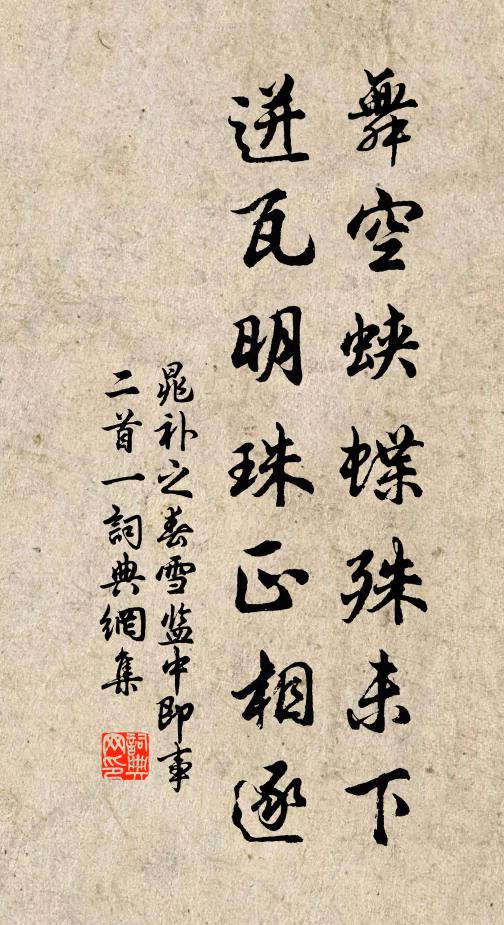 舞空蛺蝶殊未下
迸瓦明珠正相逐
晁补之春雪监中即事
二首一詞典網集
詞典网印